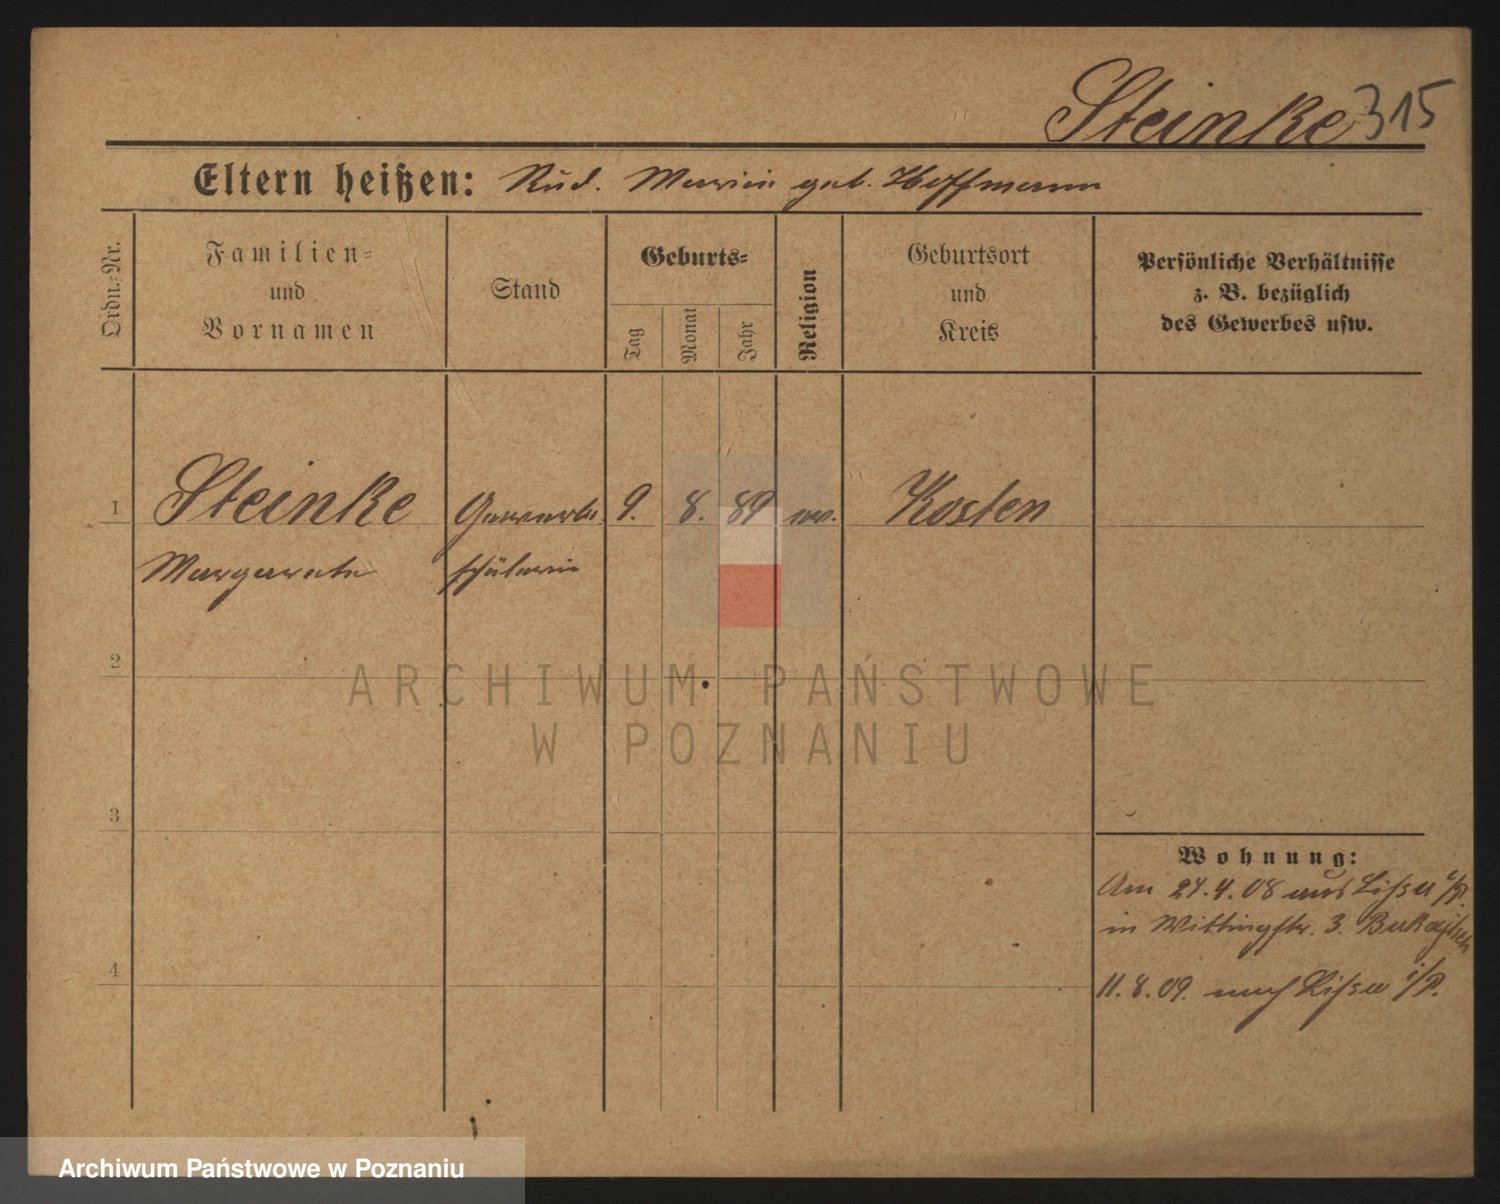 Steinke 315
Eltern heißen: Rud. Marie geb. Hoffmann
Ordn.-Nr.
Familien-
und
Vornamen
Stand
Geburts-
Tag
Monat
Jahr
Religion
Geburtsort
und
Kreis
Persönliche Verhältnisse
z. B. bezüglich
des Gewerbes usw.
1 Steinke Gewerbe 9. 8. 89 ev. Kosten
Margarete schülerin
2
3
4
Wohnung:
Am 27.4.08 aus Lissa i/P.
in Wittingstr. 3.
11.8.09. nach Lissa i/P.
ARCHIWUM PAŃSTWOWE
W POZNANIU
Archiwum Państwowe w Poznaniu